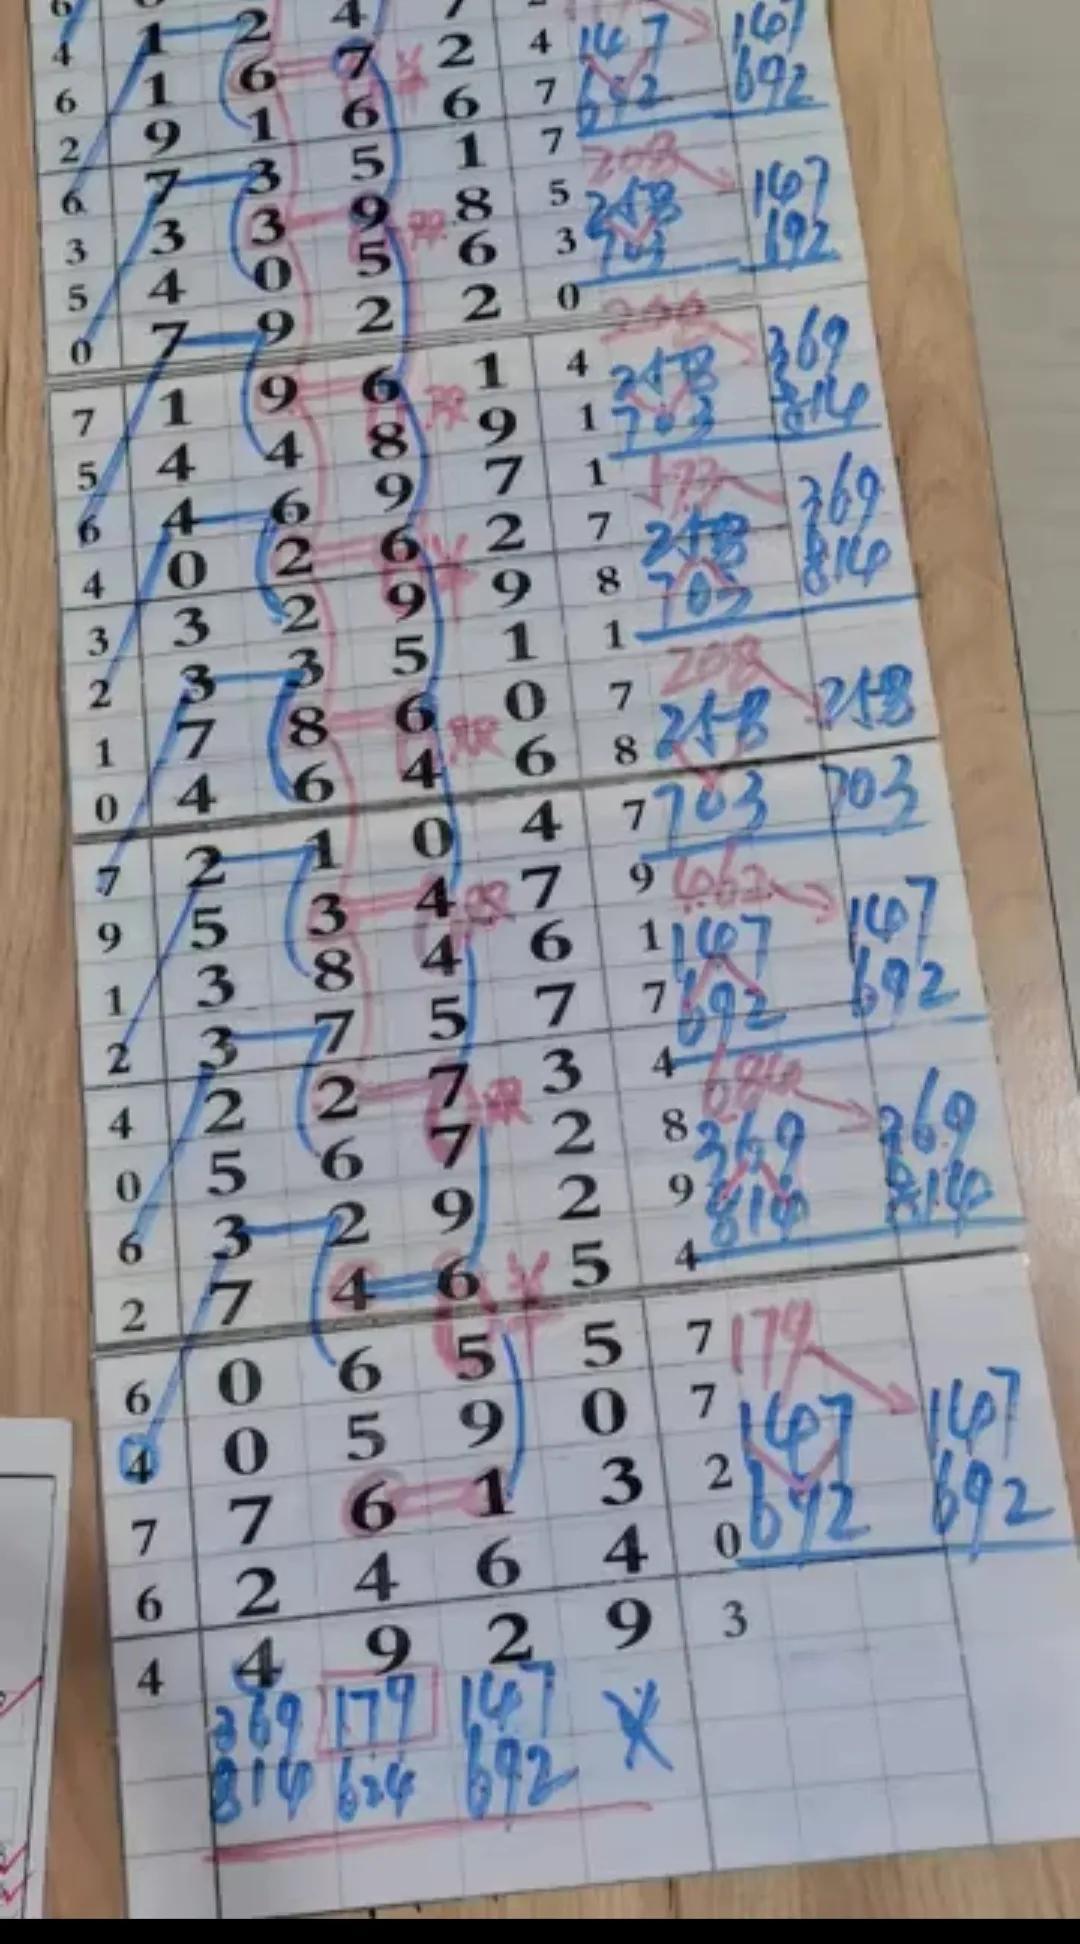 4 1 2 4 7 4 147 147
6 1 6 7 2 7 692 692
2 9 1 6 6 7
6 7 3 5 1 5 208 147
3 3 3 9 8 3 258 692
5 4 0 5 6 0 703
0 7 9 2 2 4
7 1 9 6 1 1 258 369
5 4 4 8 9 1 703 814
6 4 6 9 7 7 369
4 0 2 6 2 8 258 814
3 3 2 9 9 1 703
2 3 3 5 1 7 208
1 7 8 6 0 8 258 258
0 4 6 4 6 7 703 703
7 2 1 0 4 9
9 5 3 4 7 1 147 147
1 3 8 4 6 7 692 692
2 3 7 5 7 4
4 2 2 7 3 8 684
0 5 6 7 2 9 369 369
6 3 2 9 2 4 814 814
2 7 4 6 5 7
6 0 6 5 5 7 179
4 0 5 9 0 2 147 147
7 7 6 1 3 0 692 692
6 2 4 6 4 3
4 4 9 2 9
369 179 147
814 624 692